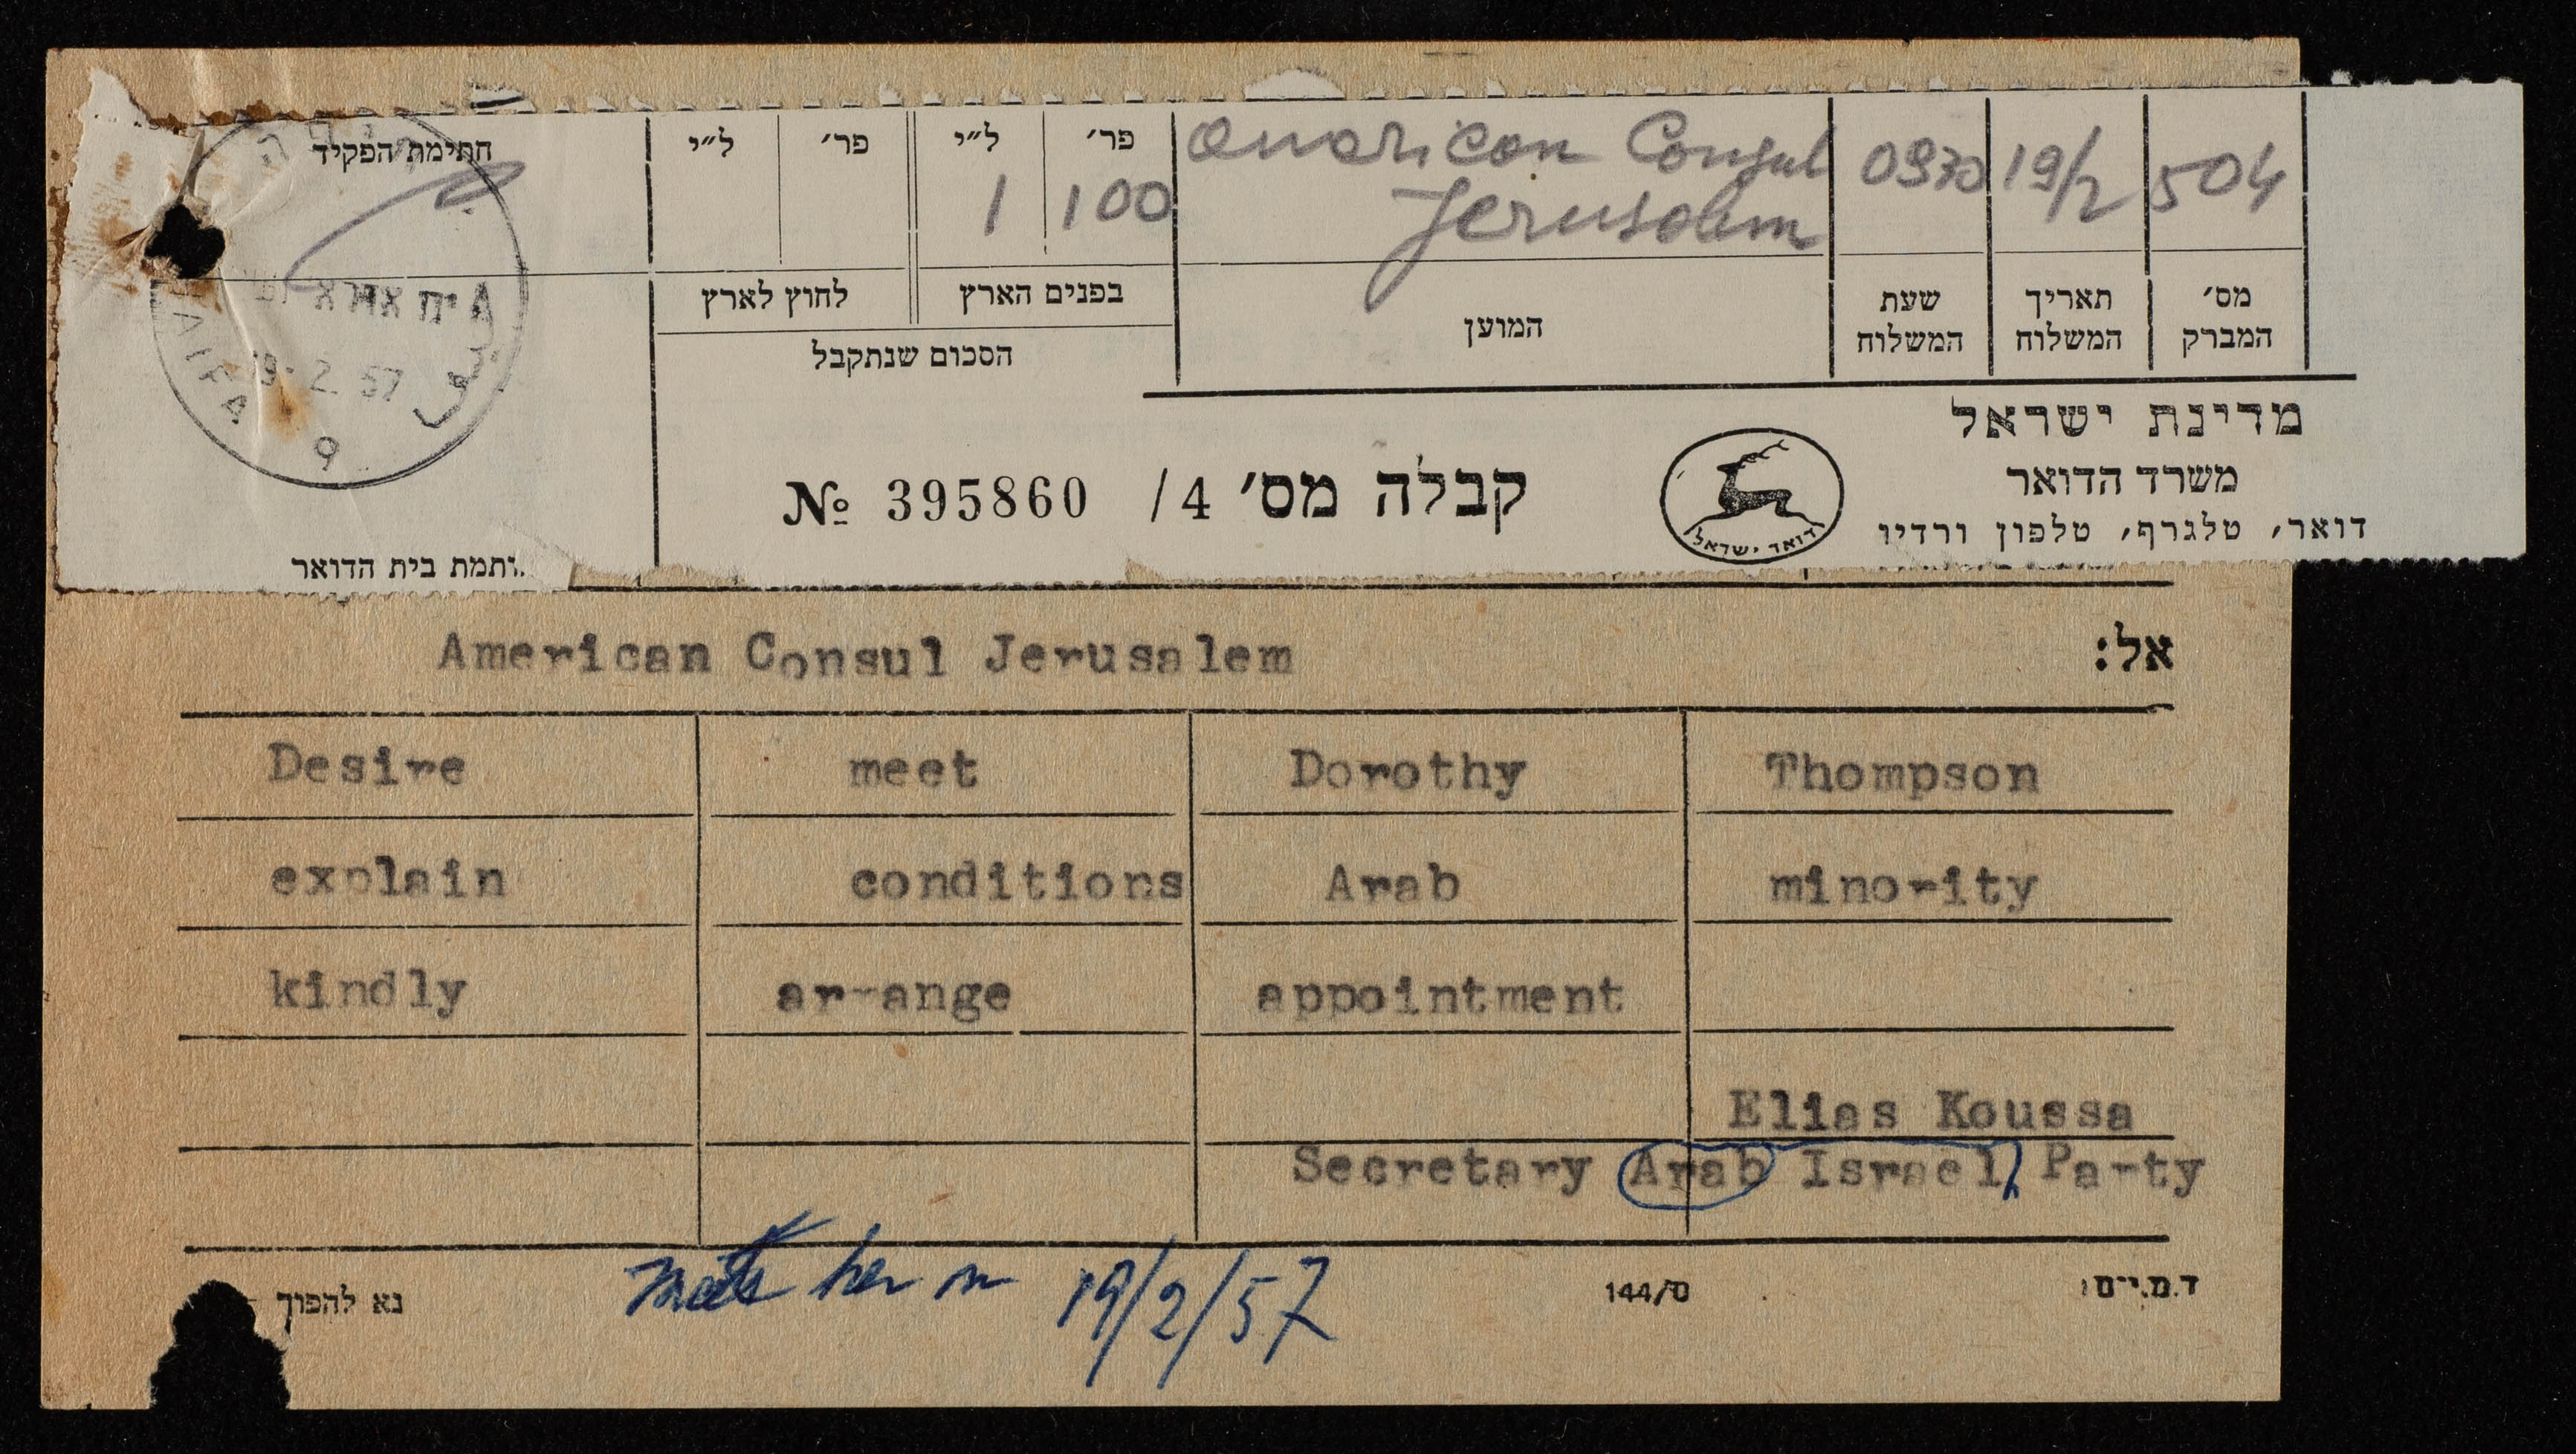 מס׳ המברק
504
תאריך המשלוח
19/2
שעת המשלוח
0930
המוען
American Consul
Jerusalem
הסכום שנתקבל
בפנים הארץ
פר׳
ל״י
100
1
לחוץ לארץ
פר׳
ל״י
חתימת הפקיד
HAIFA
19.2.57
9
מדינת ישראל
משרד הדואר
דואר, טלגרף, טלפון ורדיו
דואר ישראל
קבלה מס׳ 4/ № 395860
ותמת בית הדואר
אל: American Consul Jerusalem
Desire meet Dorothy Thompson
explain conditions Arab minority
kindly arrange appointment
Elias Koussa
Secretary Arab Israel Party
her on 19/2/57
נא להפוך
144/ס